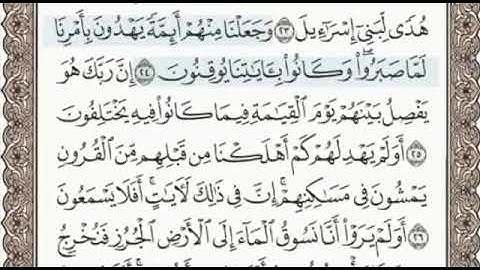 هُدًى لِّبَنِىٓ إِسْرَٰٓءِيلَ ٢٣ وَجَعَلْنَا مِنْهُمْ أَئِمَّةً يَهْدُونَ بِأَمْرِنَا
لَمَّا صَبَرُوا۟ ۖ وَكَانُوا۟ بِـَٔايَـٰتِنَا يُوقِنُونَ ٢٤ إِنَّ رَبَّكَ هُوَ
يَفْصِلُ بَيْنَهُمْ يَوْمَ ٱلْقِيَـٰمَةِ فِيمَا كَانُوا۟ فِيهِ يَخْتَلِفُونَ
٢٥ أَوَلَمْ يَهْدِ لَهُمْ كَمْ أَهْلَكْنَا مِن قَبْلِهِم مِّنَ ٱلْقُرُونِ
يَمْشُونَ فِى مَسَـٰكِنِهِمْ ۚ إِنَّ فِى ذَٰلِكَ لَـَٔايَـٰتٍ ۖ أَفَلَا يَسْمَعُونَ
٢٦ أَوَلَمْ يَرَوْا۟ أَنَّا نَسُوقُ ٱلْمَآءَ إِلَى ٱلْأَرْضِ ٱلْجُرُزِ فَنُخْرِجُ